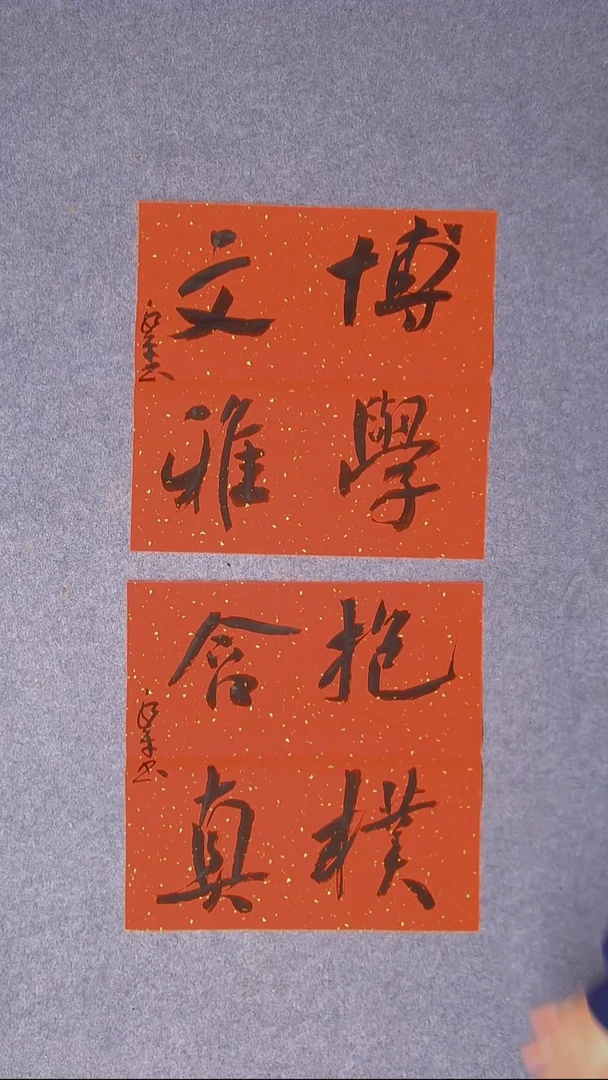 博學
文雅
抱樸
含真